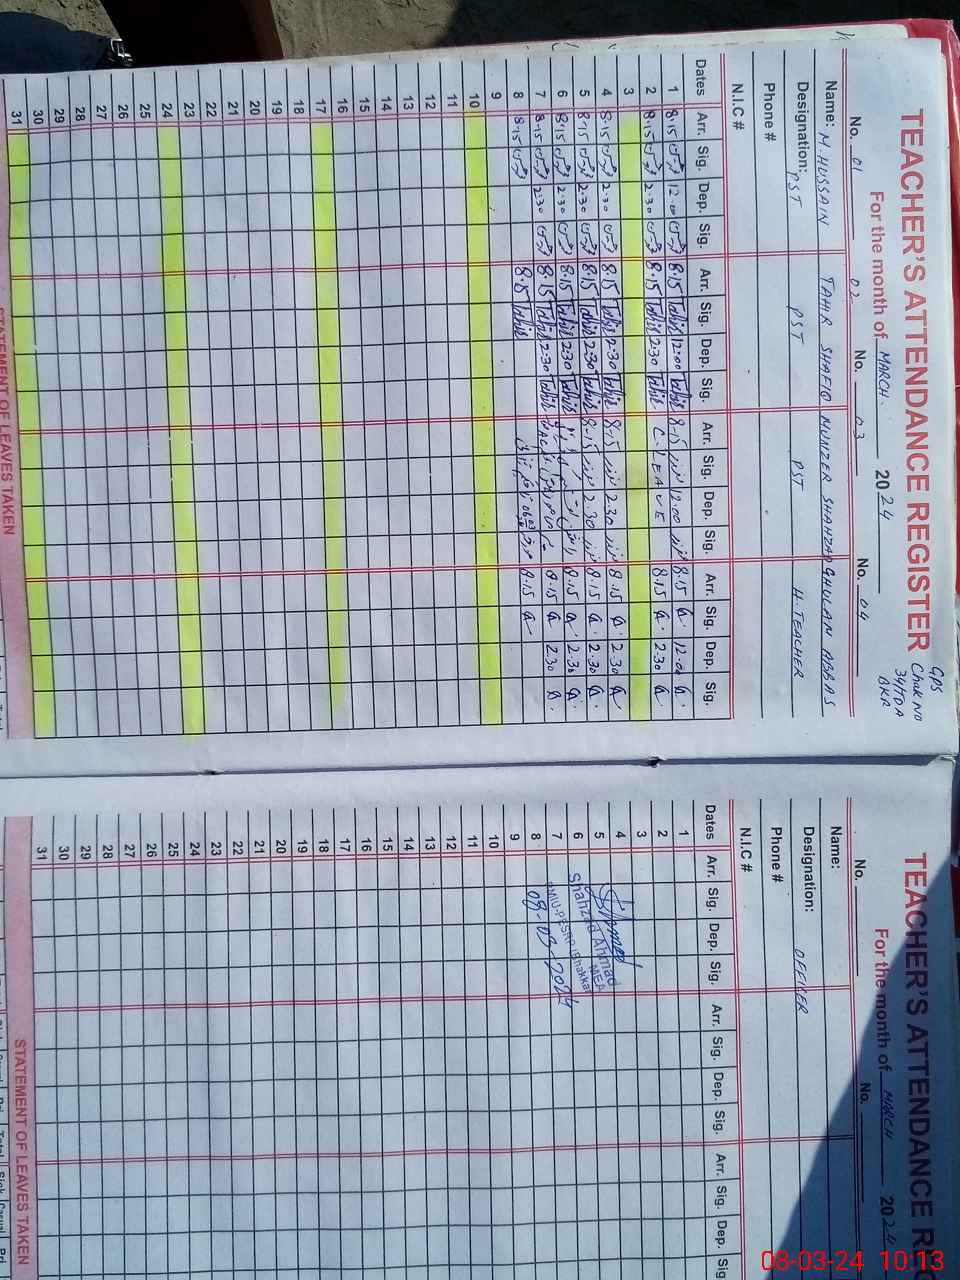 TEACHER'S ATTENDANCE REGISTER
GPS
Chak NO
34/TDA
BKR
For the month of MARCH. 2024
No. 01 02 No. 03 No. 04
Name: M. HUSSAIN TAHIR SHAFIQ MUNZER SHAHZAD GHULAM ABBAS
Designation: PST PST PST H. TEACHER
Phone #
N.I.C #
Dates Arr. Sig. Dep. Sig. Arr. Sig. Dep. Sig. Arr. Sig. Dep. Sig. Arr. Sig. Dep. Sig.
1 8-15 12:00 8-15 Tahir 12:00 Tahir 8-15 12:00 8-15 12:00
2 8-15 2:30 8-15 Tahir 2:30 Tahir C. LEAVE 8-15 2:30
3
4 8-15 2:30 8-15 Tahir 2:30 Tahir 8-15 2:30 8-15 2:30
5 8-15 2:30 8-15 Tahir 2:30 Tahir 8-15 2:30 8-15 2:30
6 8-15 2:30 8-15 Tahir 2:30 Tahir 8-15 2:30
7 8-15 2:30 8-15 Tahir 2:30 Tahir 8-15 2:30
8 8-15 8-15 Tahir 8-15
9
10
11
12
13
14
15
16
17
18
19
20
21
22
23
24
25
26
27
28
29
30
31
STATEMENT OF LEAVES TAKEN
TEACHER'S ATTENDANCE RE
For the month of MARCH 2024
No. No.
Name:
Designation: OFFICER
Phone #
N.I.C #
Dates Arr. Sig. Dep. Sig. Arr. Sig. Dep. Sig. Arr. Sig. Dep. Sig
1
2
3
4
5
6
7
8
9
10
11
12
13
14
15
16
17
18
19
20
21
22
23
24
25
26
27
28
29
30
31
Shahzad Ahmad
MEA
PMIU-PESRP/Bhakkar
08-03-2024
STATEMENT OF LEAVES TAKEN
08-03-24 10:13